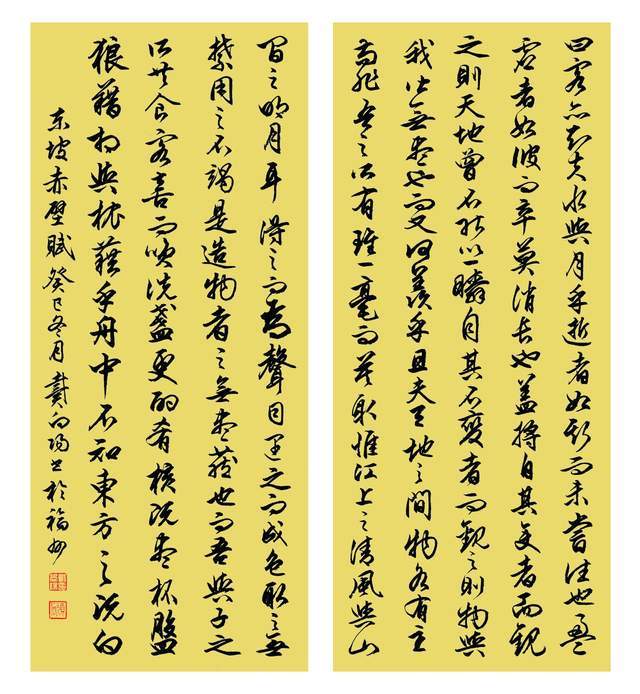 曰客亦知夫水與月乎逝者如斯而未嘗往也盈
虛者如彼而卒莫消長也蓋將自其變者而觀
之則天地曾不能以一瞬自其不變者而觀之則物與
我皆無盡也而又何羨乎且夫天地之間物各有主
苟非吾之所有雖一毫而莫取惟江上之清風與山
間之明月耳得之而為聲目遇之而成色取之無
禁用之不竭是造物者之無盡藏也而吾與子之
所共食客喜而笑洗盞更酌肴核既盡杯盤
狼藉相與枕藉乎舟中不知東方之既白
东坡赤壁賦癸巳冬月戴书於福州